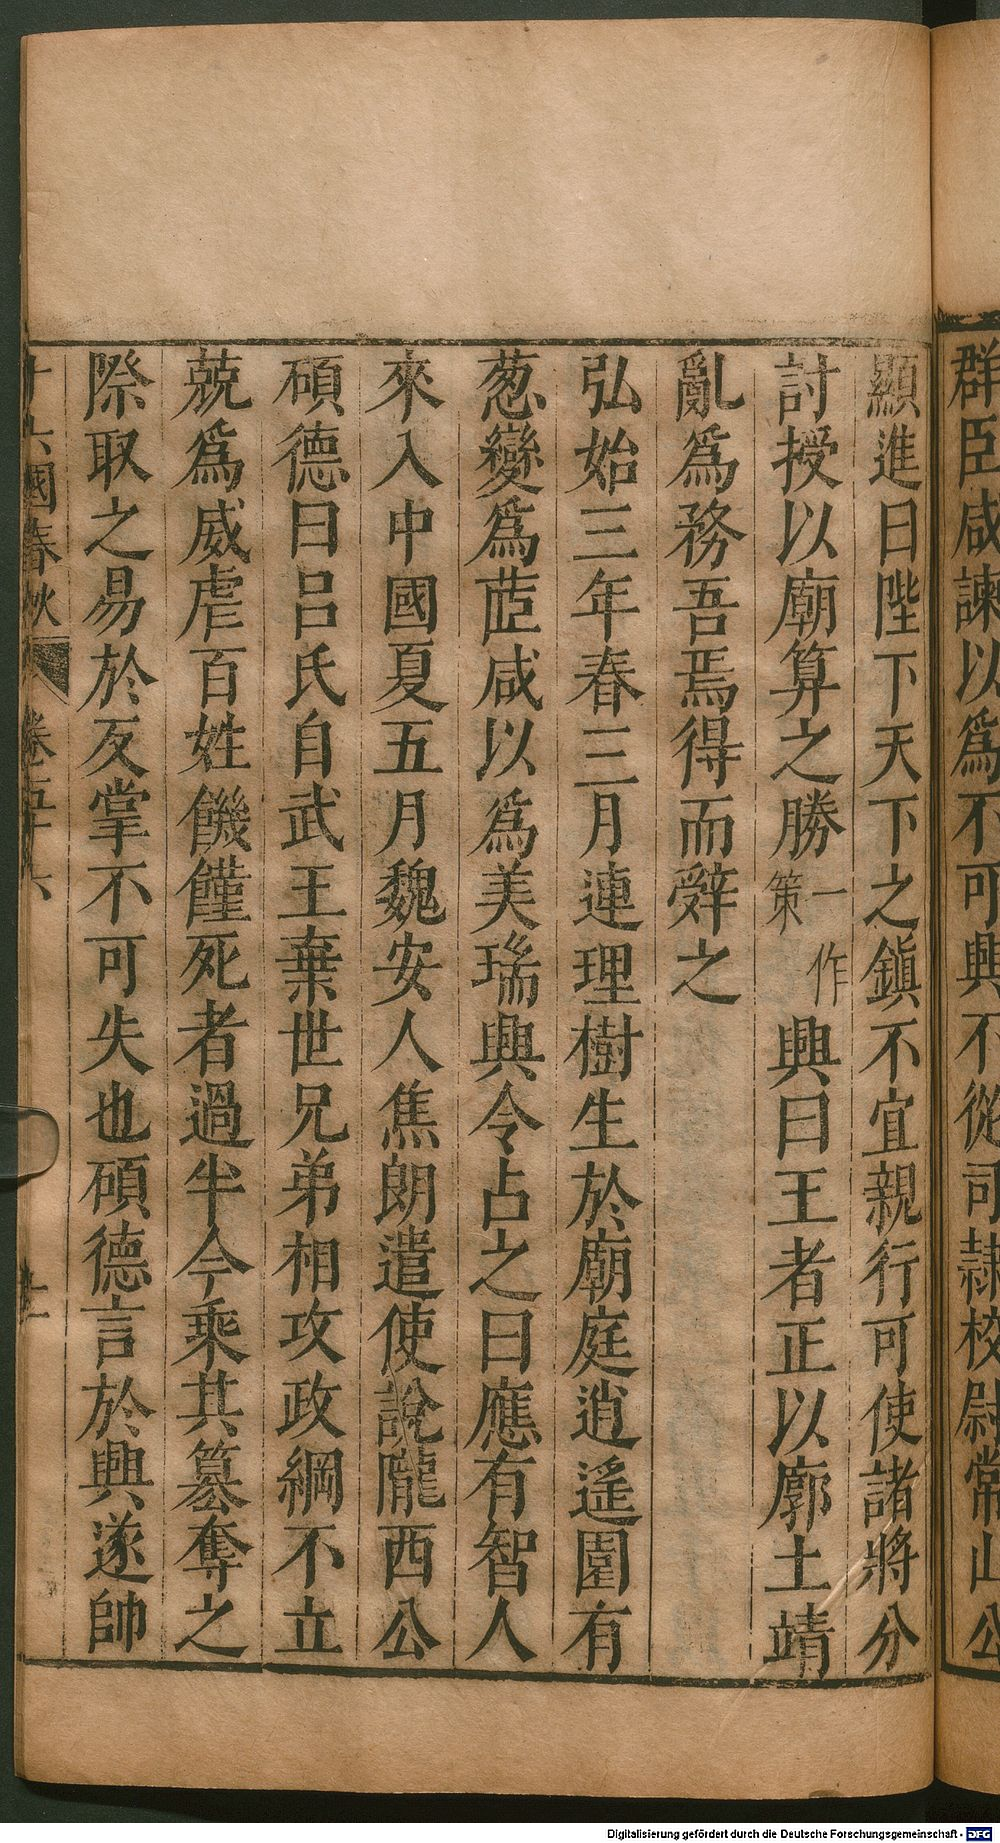 群臣咸諫以爲不可興不從司隷校尉常山公
顯進曰陛下天下之鎮不宜親行可使諸將分
討授以廟算之勝一作策興曰王者正以廓土靖
亂爲務吾焉得而辤之
弘始三年春三月連理樹生於廟庭逍遙園有
葱變爲茝咸以爲美瑞興令占之曰應有智人
來入中國夏五月魏安人焦朗遣使說隴西公
碩德曰呂氏自武王棄世兄弟相攻政綱不立
兢爲威虐百姓饑饉死者過半今乘其簒奪之
際取之易於反掌不可失也碩德言於興遂帥
十六國春秋 卷五十六 十一
Digitalisierung gefördert durch die Deutsche Forschungsgemeinschaft - DFG